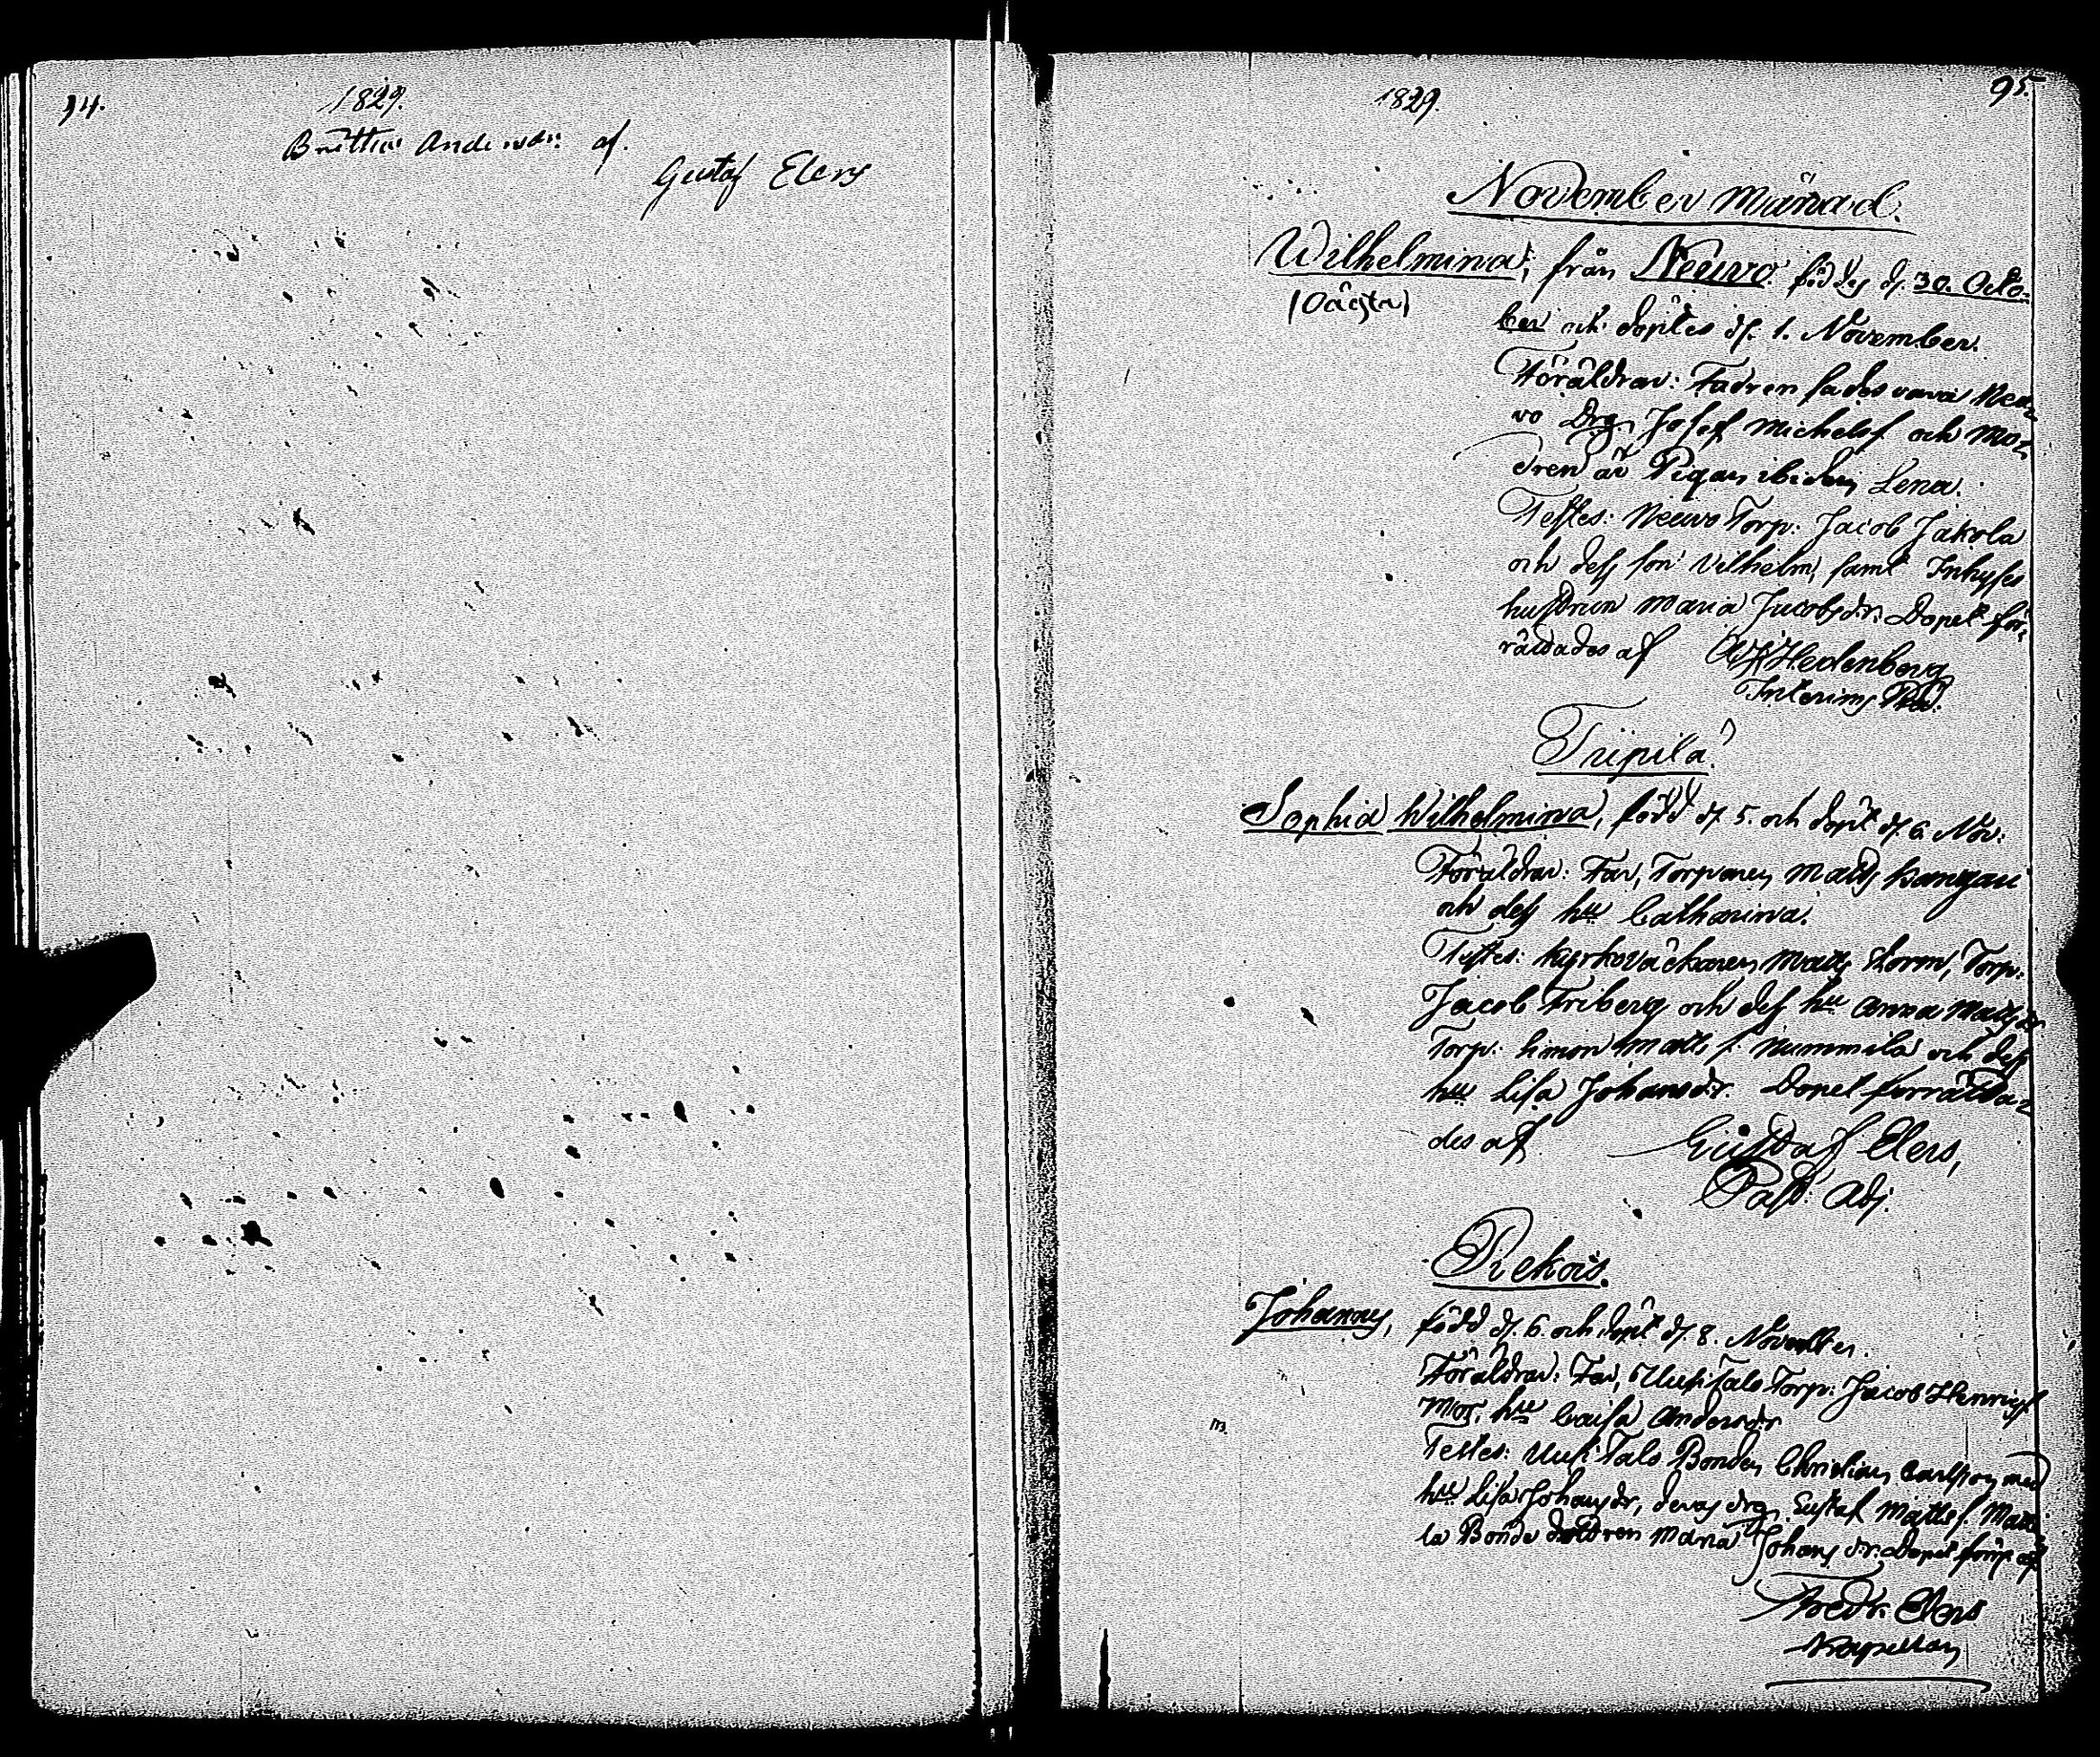 94.
1829.
Britha Andersdr: af.
Gustaf Elers
95.
1829.
November månad.
Wilhelmina, från Neuvo föddes d. 30. Octo-
(Oägta)
ber och döptes d. 1. November.
Föräldrar: Fadren sades vara Neu-
vo Drg. Josef Michelsf och Mo-
dren är Pigan ibidem Lena.
Testes: Neuvo Torp: Jacob Jakola
och dess son Vilhelm, samt Inhyses
hustrun Maria Jacobsdr: Dopet för-
rättades af Hedenberg
Interims Pred.
Tripila.
Sophia Wilhelmina, född d. 5. och döpt d. 6. Nov:
Föräldrar: Far, Torparen Matts Kangau
och dess hu Catharina.
Testes: Kyrkoväktaren Matts Storm, Torp:
Jacob Friberg och dess hu Anna Mattsdr
Torp: Simon Matts f. Nummila och dess
hu Lisa Johansdr. Dopet förrätta-
des af Gustaf Elers,
Past: Adj.
Rekois.
Johannes, född d. 6. och döpt d. 8. November.
Föräldrar: Far, Uusi Talo Torp: Jacob Henrigsf
Mor, hu Caisa Andersdr
Testes: Uusi Talo Bonden Christian Carlsson med
hu Lisa Johansdr, deras drg. Gustaf Mattsf. Matt
la Bonde dottren Maria Johans dr: Dopet förr. af
Fredr. Elers
Kapellan